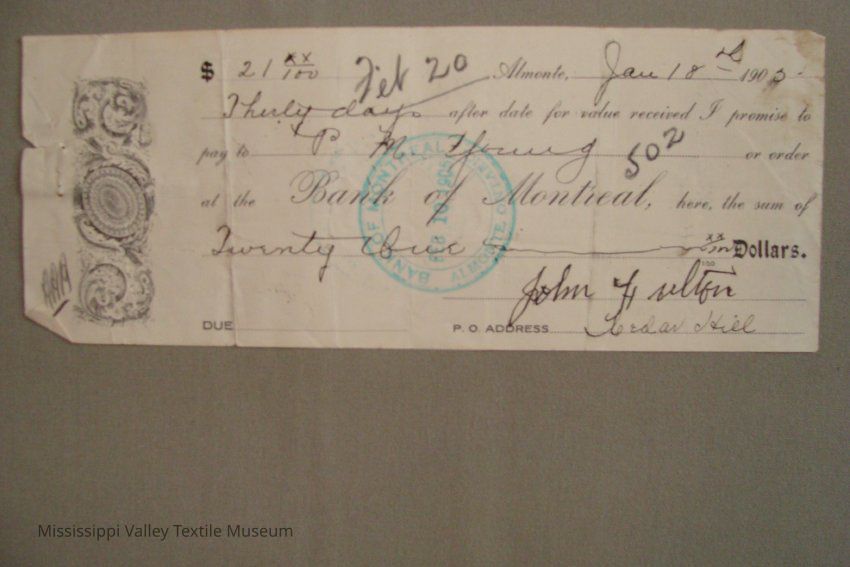 $ 21 xx/100 Feb 20 Almonte, Jan 18th 1905
Thirty days after date for value received I promise to
pay to P M Young 502 or order
at the Bank of Montreal, here, the sum of
Twenty One xx/100 Dollars.
BANK OF MONTREAL
FEB 1905
ALMONTE
John Fulton
DUE P. O. ADDRESS Cedar Hill
Mississippi Valley Textile Museum